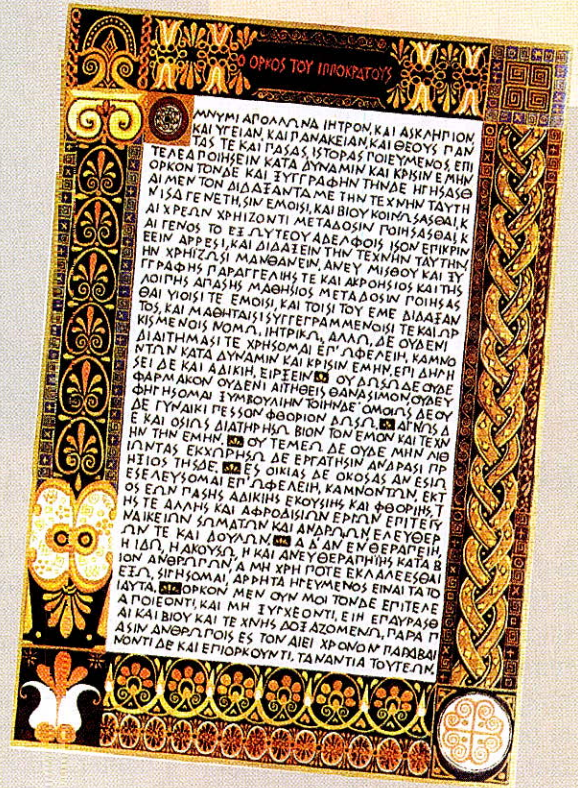 Ο ΟΡΚΟΣ ΤΟΥ ΙΠΠΟΚΡΑΤΟΥΣ
ΜΝΥΜΙ ΑΠΟΛΛΩΝΑ ΙΗΤΡΟΝ, ΚΑΙ ΑΣΚΛΗΠΙΟΝ
ΚΑΙ ΥΓΕΙΑΝ, ΚΑΙ ΠΑΝΑΚΕΙΑΝ, ΚΑΙ ΘΕΟΥΣ ΠΑΝ
ΤΑΣ ΤΕ ΚΑΙ ΠΑΣΑΣ, ΙΣΤΟΡΑΣ ΠΟΙΕΥΜΕΝΟΣ, ΕΠΙ
ΤΕΛΕΑ ΠΟΙΗΣΕΙΝ ΚΑΤΑ ΔΥΝΑΜΙΝ ΚΑΙ ΚΡΙΣΙΝ ΕΜΗΝ
ΟΡΚΟΝ ΤΟΝΔΕ ΚΑΙ ΞΥΓΓΡΑΦΗΝ ΤΗΝΔΕ ΗΓΗΣΑΣΘ
ΑΙ ΜΕΝ ΤΟΝ ΔΙΔΑΞΑΝΤΑ ΜΕ ΤΗΝ ΤΕΧΝΗΝ ΤΑΥΤΗ
Ν ΙΣΑ ΓΕΝΕΤΗΣΙΝ ΕΜΟΙΣΙ, ΚΑΙ ΒΙΟΥ ΚΟΙΝΩΣΑΣΘΑΙ, Κ
ΑΙ ΧΡΕΩΝ ΧΡΗΙΖΟΝΤΙ ΜΕΤΑΔΟΣΙΝ ΠΟΙΗΣΑΣΘΑΙ, Κ
ΑΙ ΓΕΝΟΣ ΤΟ ΕΞ ΩΥΤΕΟΥ ΑΔΕΛΦΟΙΣ ΙΣΟΝ ΕΠΙΚΡΙΝ
ΕΕΙΝ ΑΡΡΕΣΙ, ΚΑΙ ΔΙΔΑΞΕΙΝ ΤΗΝ ΤΕΧΝΗΝ ΤΑΥΤΗΝ
ΗΝ ΧΡΗΙΖΩΣΙ ΜΑΝΘΑΝΕΙΝ, ΑΝΕΥ ΜΙΣΘΟΥ ΚΑΙ ΞΥ
ΓΓΡΑΦΗΣ ΠΑΡΑΓΓΕΛΙΗΣ ΤΕ ΚΑΙ ΑΚΡΟΗΣΙΟΣ ΚΑΙ ΤΗΣ
ΛΟΙΠΗΣ ΑΠΑΣΗΣ ΜΑΘΗΣΙΟΣ ΜΕΤΑΔΟΣΙΝ ΠΟΙΗΣΑΣ
ΘΑΙ ΥΙΟΙΣΙ ΤΕ ΕΜΟΙΣΙ, ΚΑΙ ΤΟΙΣΙ ΤΟΥ ΕΜΕ ΔΙΔΑΞΑΝ
ΤΟΣ, ΚΑΙ ΜΑΘΗΤΑΙΣΙ ΣΥΓΓΕΓΡΑΜΜΕΝΟΙΣΙ ΤΕ ΚΑΙ ΩΡ
ΚΙΣΜΕΝΟΙΣ ΝΟΜΩ, ΙΗΤΡΙΚΩ, ΑΛΛΩ, ΔΕ ΟΥΔΕΝΙ
ΔΙΑΙΤΗΜΑΣΙ ΤΕ ΧΡΗΣΟΜΑΙ ΕΠ' ΩΦΕΛΕΙΗ, ΚΑΜΝΟ
ΝΤΩΝ ΚΑΤΑ ΔΥΝΑΜΙΝ ΚΑΙ ΚΡΙΣΙΝ ΕΜΗΝ, ΕΠΙ ΔΗΛΗ
ΣΕΙ ΔΕ ΚΑΙ ΑΔΙΚΙΗ, ΕΙΡΞΕΙΝ ΟΥ ΔΩΣΩ ΔΕ ΟΥΔΕ
ΦΑΡΜΑΚΟΝ ΟΥΔΕΝΙ ΑΙΤΗΘΕΙΣ ΘΑΝΑΣΙΜΟΝ, ΟΥΔΕ Υ
ΦΗΓΗΣΟΜΑΙ ΞΥΜΒΟΥΛΙΗΝ ΤΟΙΗΝΔΕ ΟΜΟΙΩΣ ΔΕ ΟΥ
ΔΕ ΓΥΝΑΙΚΙ ΠΕΣΣΟΝ ΦΘΟΡΙΟΝ ΔΩΣΩ. ΑΓΝΩΣ Δ
Ε ΚΑΙ ΟΣΙΩΣ ΔΙΑΤΗΡΗΣΩ ΒΙΟΝ ΤΟΝ ΕΜΟΝ ΚΑΙ ΤΕΧΝ
ΗΝ ΤΗΝ ΕΜΗΝ. ΟΥ ΤΕΜΕΩ ΔΕ ΟΥΔΕ ΜΗΝ ΛΙΘ
ΙΩΝΤΑΣ ΕΚΧΩΡΗΣΩ ΔΕ ΕΡΓΑΤΗΣΙΝ ΑΝΔΡΑΣΙ ΠΡ
ΗΞΙΟΣ ΤΗΣΔΕ ΕΣ ΟΙΚΙΑΣ ΔΕ ΟΚΟΣΑΣ ΑΝ ΕΣΙΩ
ΕΣΕΛΕΥΣΟΜΑΙ ΕΠ' ΩΦΕΛΕΙΗ, ΚΑΜΝΟΝΤΩΝ, ΕΚΤ
ΟΣ ΕΩΝ ΠΑΣΗΣ ΑΔΙΚΙΗΣ ΕΚΟΥΣΙΗΣ ΚΑΙ ΦΘΟΡΙΗΣ, Τ
ΗΣ ΤΕ ΑΛΛΗΣ ΚΑΙ ΑΦΡΟΔΙΣΙΩΝ ΕΡΓΩΝ ΕΠΙ ΤΕ ΓΥ
ΝΑΙΚΕΙΩΝ ΣΩΜΑΤΩΝ ΚΑΙ ΑΝΔΡΩΩΝ, ΕΛΕΥΘΕΡ
ΩΝ ΤΕ ΚΑΙ ΔΟΥΛΩΝ. Α Δ' ΑΝ ΕΝ ΘΕΡΑΠΕΙΗ,
Η ΙΔΩ, Η ΑΚΟΥΣΩ, Η ΚΑΙ ΑΝΕΥ ΘΕΡΑΠΗΙΗΣ ΚΑΤΑ Β
ΙΟΝ ΑΝΘΡΩΠΩΝ, Α ΜΗ ΧΡΗ ΠΟΤΕ ΕΚΛΑΛΕΕΣΘΑΙ
ΕΞΩ, ΣΙΓΗΣΟΜΑΙ, ΑΡΡΗΤΑ ΗΓΕΥΜΕΝΟΣ ΕΙΝΑΙ ΤΑ ΤΟ
ΙΑΥΤΑ. ΟΡΚΟΝ ΜΕΝ ΟΥΝ ΜΟΙ ΤΟΝΔΕ ΕΠΙΤΕΛΕ
Α ΠΟΙΕΟΝΤΙ, ΚΑΙ ΜΗ ΞΥΓΧΕΟΝΤΙ, ΕΙΗ ΕΠΑΥΡΑΣΘ
ΑΙ ΚΑΙ ΒΙΟΥ ΚΑΙ ΤΕΧΝΗΣ ΔΟΞΑΖΟΜΕΝΩ, ΠΑΡΑ Π
ΑΣΙΝ ΑΝΘΡΩΠΟΙΣ ΕΣ ΤΟΝ ΑΙΕΙ ΧΡΟΝΟΝ ΠΑΡΑΒΑΙ
ΝΟΝΤΙ ΔΕ ΚΑΙ ΕΠΙΟΡΚΟΥΝΤΙ, ΤΑΝΑΝΤΙΑ ΤΟΥΤΕΩΝ.